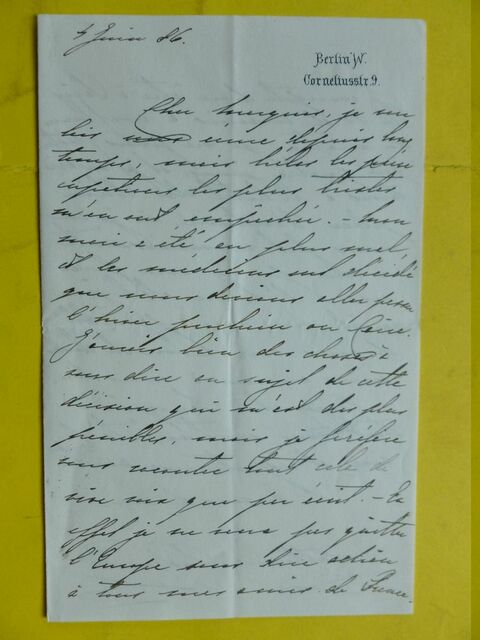 4 Juin 86.
Berlin W.
Corneliusstr. 9.
Cher marquis, je vou
lais vous écrire depuis long
temps, mais hélas les préoc
cupations les plus tristes
m'en ont empêchée. – mon
mari a été au plus mal
et les médecins ont décidé
que nous devions aller passer
l'hiver prochain au Caire.
J'aurais bien des choses à
vous dire au sujet de cette
décision qui m'est des plus
pénibles, mais je préfère
vous raconter tout cela de
vive voix que par écrit. – En
effet je ne veux pas quitter
l'Europe sans dire adieu
à tous mes amis de France.